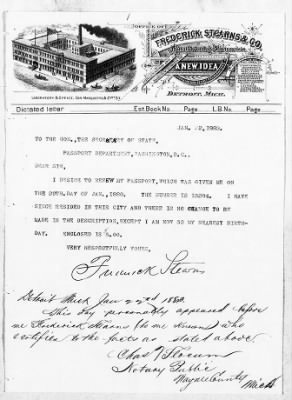 OFFICE OF
FREDERICK STEARNS & CO.
Manufacturing Pharmacists.
A NEW IDEA
DETROIT, MICH.
LABORATORY & OFFICE,
Dictated letter Est Book No. Page. L B No. Page.
JAN. 22, 1889.
TO THE HON., THE SECRETARY OF STATE,
PASSPORT DEPARTMENT, WASHINGTON, D.C.,
DEAR SIR,
I DESIRE TO RENEW MY PASSPORT, WHICH WAS GIVEN ME ON
THE DAY OF JAN., THE NUMBER IS I HAVE
SINCE RESIDED IN THIS CITY AND THERE IS NO CHANGE TO BE
MADE IN THE DESCRIPTION, EXCEPT I AM NOW 58 MY NEAREST BIRTH-
DAY. ENCLOSED IS
VERY RESPECTFULLY YOURS,
Frederick Stearns
Detroit Mich Jany 22nd 1889.
This day personally appeared before
me Frederick Stearns (to me known) who
certifies to the facts as stated above.
Chas Slocum
Notary Public
Wayne County Mich